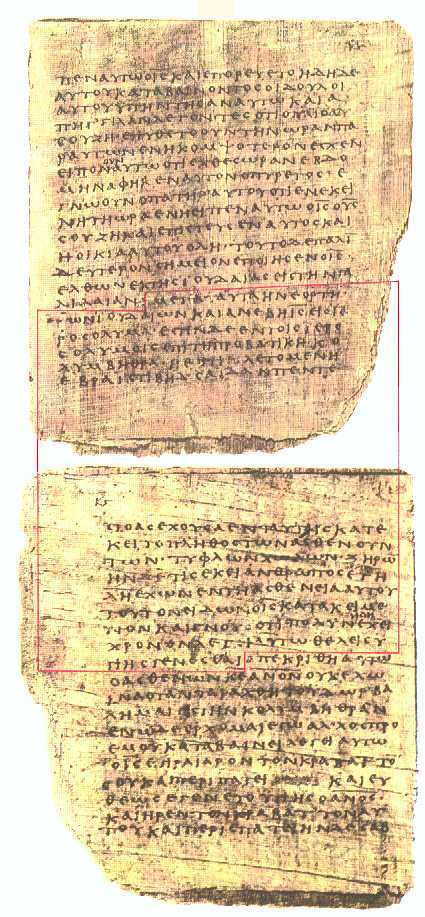 ΠΕΝΑΥΤΩΟΙΣΚΑΙΕΠΟΡΕΥΕΤΟΗΔΗΔΕ
ΑΥΤΟΥΚΑΤΑΒΑΙΝΟΝΤΟΣΟΙΔΟΥΛΟΙ
ΑΥΤΟΥΥΠΗΝΤΗΣΑΝΑΥΤΩΚΑΙΑ
ΠΗΓΓΙΛΑΝΛΕΓΟΝΤΕΣΟΤΙΟΥΙΟΣΑΥ
ΣΟΥΖΗ·ΕΠΥΘΕΤΟΟΥΝΤΗΝΩΡΑΝΠΑ
ΡΑΥΤΩΝΕΝΗΚΟΜΨΟΤΕΡΟΝΕΣΧΕΝ
ΕΙΠΟΝΑΥΤΩΟΤΙΕΧΘΕΣΩΡΑΝΕΒΔΟ
ΜΗΝΑΦΗΚΕΝΑΥΤΟΝΟΠΥΡΕΤΟΣ·Ε
ΓΝΩΟΥΝΟΠΑΤΗΡΑΥΤΟΥΟΤΙΕΝΕΚΕΙ
ΝΗΤΗΩΡΑΕΝΗΕΙΠΕΝΑΥΤΩΙΣΟΥΣ
ΣΟΥΖΗΚΑΙΕΠΙΣΤΕΥΣΕΝΑΥΤΟΣΚΑΙ
ΗΟΙΚΙΑΑΥΤΟΥΟΛΗ·ΤΟΥΤΟΔΕΠΑΛΙ
ΔΕΥΤΕΡΟΝΣΗΜΕΙΟΝΕΠΟΙΗΣΕΝΟΙΣ
ΕΛΘΩΝΕΚΤΗΣΙΟΥΔΑΙΑΣΕΙΣΤΗΝΓΑ
ΛΙΛΑΙΑΝ·ΜΕΤΑΤΑΥΤΑΗΝΕΟΡΤΗ
ΤΩΝΙΟΥΔΑΙΩΝΚΑΙΑΝΕΒΗΙΣΕΙΣΙΕ
ΡΟΣΟΛΥΜΑ·ΕΣΤΙΝΔΕΕΝΤΟΙΣΙΕΡΟ
ΣΟΛΥΜΟΙΣΕΠΙΤΗΠΡΟΒΑΤΙΚΗΚΟ
ΛΥΜΒΗΘΡΑΗΕΠΙΛΕΓΟΜΕΝΗ
ΕΒΡΑΙΣΤΙΒΗΔΣΑΙΔΑΝΠΕΝΤΕ
ΣΤΟΑΣΕΧΟΥΣΑΕΝΤΑΥΤΑΙΣΚΑΤΕ
ΚΕΙΤΟΠΛΗΘΟΣΤΩΝΑΣΘΕΝΟΥΝ
ΤΩΝ·ΤΥΦΛΩΝΧΩΛΩΝΞΗΡΩ
ΗΝΔΕΤΙΣΕΚΕΙΑΝΘΡΩΠΟΣΛΗ
ΛΗΕΧΩΝΕΝΤΗΑΣΘΕΝΕΙΑΑΥΤΟΥ
ΤΟΥΤΟΝΕΙΔΩΝΟΙΣΚΑΤΑΚΕΙΜΕ
ΝΟΝΚΑΙΓΝΟΥΣΟΤΙΠΟΛΥΝΕΧΕΙ
ΧΡΟΝΟΝΛΕΓΕΙΑΥΤΩΘΕΛΕΙΣΥ
ΓΙΗΣΓΕΝΕΣΘΑΙΑΠΕΚΡΙΘΗΑΥΤΩ
ΟΑΣΘΕΝΩΝΚΕΑΝΟΝΟΥΚΕΧΩ
ΙΝΑΟΤΑΝΤΑΡΑΧΘΗΤΟΥΔΩΡΒΑ
ΛΗΜΕΕΙΣΤΗΝΚΟΛΥΜΒΗΘΡΑΝ
ΕΝΩΔΕΕΡΧΟΜΑΙΕΓΩΑΛΛΟΣΠΡΟ
ΕΜΟΥΚΑΤΑΒΑΙΝΕΙΛΕΓΕΙΑΥΤΩ
ΟΙΣΕΓΕΙΡΑΙΑΡΟΝΤΟΝΚΡΑΒΑΤΤΟ
ΣΟΥΚΑΙΠΕΡΙΠΑΤΕΙΚΑΙΕΥ
ΘΕΩΣΕΓΕΝΕΤΟΥΓΙΗΣΟΑΝΟΣ
ΚΑΙΗΡΕΝΤΟΝΚΡΑΒΑΤΤΟΝΑΥ
ΤΟΥΚΑΙΠΕΡΙΕΠΑΤΕΙΗΝΔΕΣΑΒ